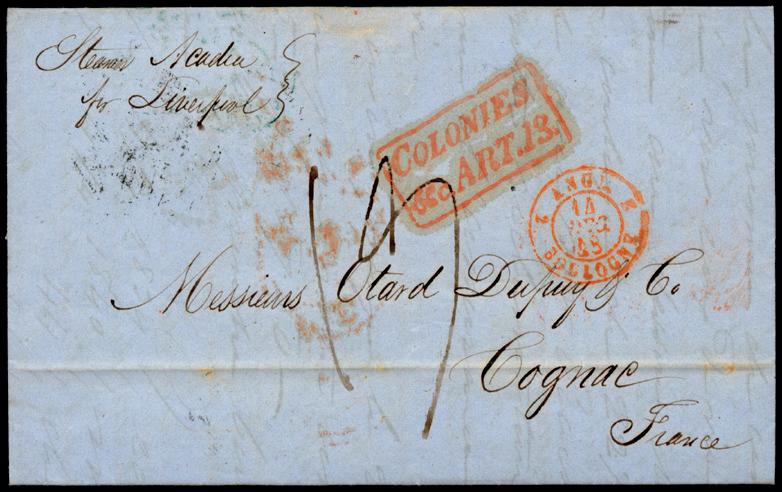 Steamer Acadia
for Liverpool
COLONIES
&c. ART. 13.
2 ANGL. 2
14
45
BOULOGNE
15
Messieurs Otard Dupuy & Co.
Cognac
France